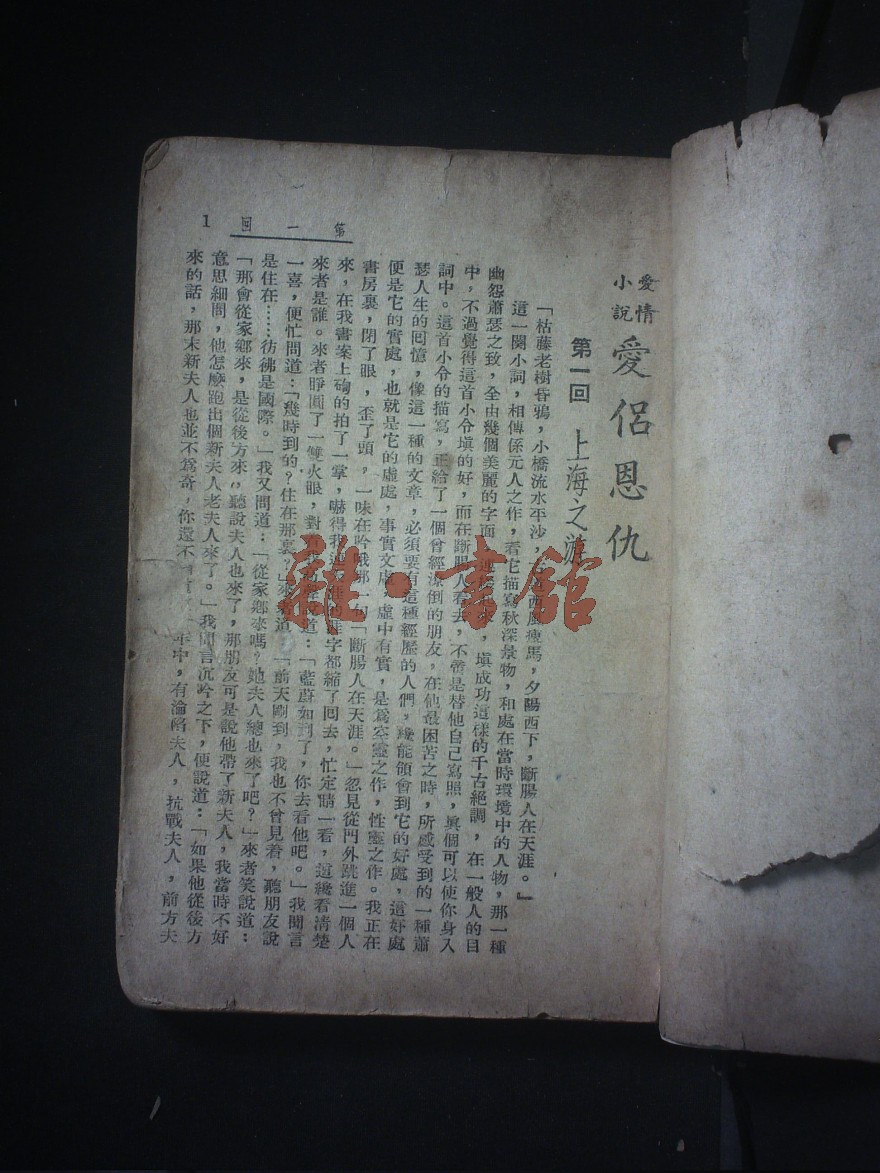 愛情小說
愛侶恩仇
第一回 上海之游
「枯藤老樹昏鴉，小橋流水平沙，西風瘦馬，夕陽西下，斷腸人在天涯。」
這一闋小詞，相傳係元人之作，看它描寫秋深景物，和處在當時環境中的人物，那一種
幽怨蕭瑟之致，全由幾個美麗的字面，填成功這樣的千古絕調，在一般人的目
中，不過覺得這首小令填的好，而在斷腸人看去，不啻是替他自己寫照，眞個可以使你身入
詞中。這首小令的描寫，正給了一個曾經潦倒的朋友，在他最困苦之時，所感受到的一種蕭
瑟人生的囘憶，像這一種的文章，必須要有這種經歷的人們，纔能領會到它的好處，這好處
便是它的實處，也就是它的虛處，事實文虛，虛中有實，是爲空靈之作，性靈之作。我正在
書房裏，閉了眼，歪了頭，一味在吟哦那一句「斷腸人在天涯。」忽見從門外跳進一個人
來，在我書案上砲的拍了一掌，嚇得我字都縮了囘去，忙定睛一看，這纔看清楚
來者是誰。來者睜圓了一雙火眼，對道：「藍蔚如到了，你去看他吧。」我聞言
一喜，便忙問道：「幾時到的？住在那裏？」來者道：「前天剛到，我也不曾見着，聽朋友說
是住在……彷彿是國際。」我又問道：「從家鄉來嗎？她夫人總也來了吧？」來者笑說道：
「那會從家鄉來，是從後方來，聽說夫人也來了，那朋友可是說他帶了新夫人，我當時不好
意思細問，他怎麼跑出個新夫人老夫人來了。」我聞言沉吟之下，便說道：「如果他從後方
來的話，那末新夫人也並不爲奇，你還不中，有淪陷夫人，抗戰夫人，前方夫
第一回
1
雜·書館